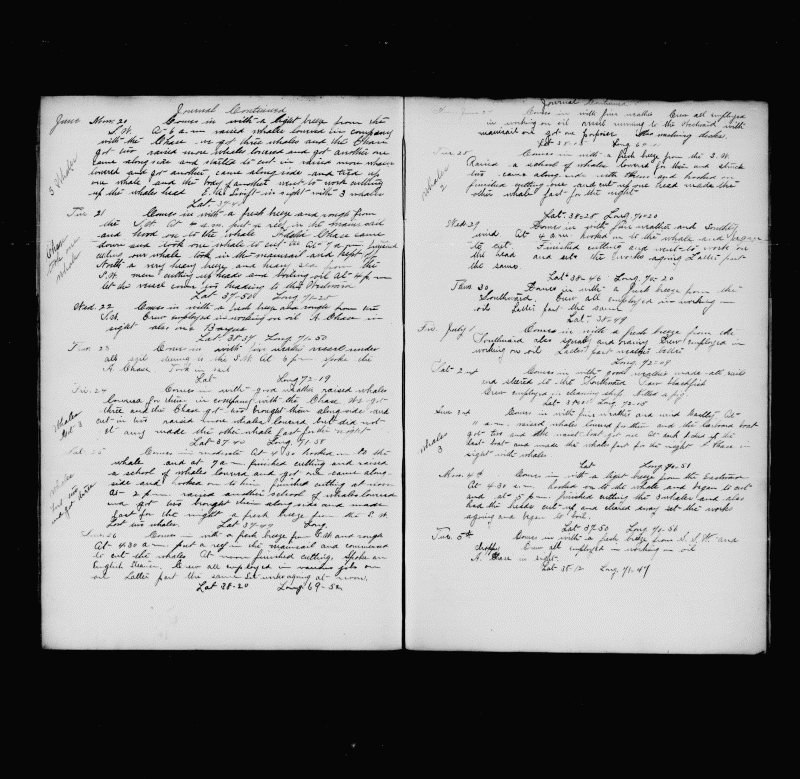 Journal Continued
June Mon. 20 Comes in with a light breeze from the
S.W. At 6 a.m. raised whales lowered in company
with the Chase we got three whales and the Chase
got two raised more whales lowered and got another one
came along side and started to cut in raised more whales
lowered and got another came along side and tied up
one whale and the body of another went to work cutting
up the whales head in sight with 3 whales
5 Whales
Lat 37-40
Tue. 21 Comes in with a fresh breeze and rough from
the S.W. At 4 a.m. put a reef in the mainsail
and hove on to the whale Chase came
down and took one whale to cut in At 7 a.m. finished
cutting our whale took in the mainsail and kept off
North a very heavy breeze and heavy sea from the
S.W. men cutting up heads and boiling oil At 4 p.m.
let the vessel come too heading to the Westward
Chase took one whale
Lat 37-50 Long 71-25
Wed. 22 Comes in with a fresh breeze also rough from the
S.W. Crew employed in working on oil A. Chase in
sight also one Barque
Lat. 38-37 Long. 71-50
Thur 23 Comes in with fine weather vessel under
all sail steering to the S.W. At 6 p.m. spoke the
A Chase Took in sail
Lat Long 72-19
Fri. 24 Comes in with good weather raised whales
lowered for them in company with the Chase We got
three and the Chase got two brought them along side and
cut in two raised more whales lowered but did not
get any made the other whale fast for the night
Whales 3
Lat 37-40 Long. 71-38
Sat. 25 Comes in moderate At 4.30 hooked on to the
whale and at 7 a.m. finished cutting and raised
a school of whales lowered and got one came along-
side and hooked on to him finished cutting at noon
At 2 p.m. raised another school of whales lowered
and got two brought them along side and made
fast for the night a fresh breeze from the S.W.
Lost two whales. Lat 37-47 Long
Whales lost two and got three
Sun. 26 Comes in with a fresh breeze from S.W. and rough
At 4.30 a.m. put a reef in the mainsail and commenced
to cut the whales At noon finished cutting. Spoke an
English Steamer. Crew all employed in various jobs on
oil Latter part the same Set works agoing at noon.
Lat 38-20 Long 69-52
Journal Continued
Comes in with fine weather Crew all employed
in working on oil vessel running to the Westward with
mainsail on got one porpoise Also washing decks
Lat 38-18 Long 69
Tue. 28 Comes in with a fresh breeze from the S.W.
Raised a school of whales lowered for them and struck
two came along side with them and hooked on
finished cutting one and cut up one head made the
other whale fast for the night
Whales 2
Lat. 38-28 Long 70-20
Wed 29 Comes in with fair weather and Southly
wind At 4 a.m. hooked on to the whale and began
to cut. Finished cutting and went to work on
the head and set the works agoing Latter part
the same
Lat 38-46 Long. 70-20
Thur. 30 Comes in with a fresh breeze from the
Southward. Crew all employed in working on
oil Latter part the same
Lat. 38-49
Fri. July 1 Comes in with a fresh breeze from the
Southward also squally and raining Crew employed in
working on oil Latter part weather better
Long. 72-08
Sat. 2nd Comes in with good weather made all sail
and steered to the Southward Saw blackfish
Crew employed in cleaning ship Killed a pig
Long 72-05
Sun. 3rd Comes in with fine weather and wind Easterly At
11 a.m. raised whales lowered for them and the larboard boat
got two and the waist boat got one At each sides of the
last boat and made the whales fast for the night A Chase in
sight with whales
Whales 3
Lat Long 70-51
Mon. 4th Comes in with a light breeze from the Eastward
At 4.30 a.m. hooked on to the whale and began to cut
and at 5 p.m. finished cutting the 3 whales and also
had the heads cut up and cleared away set the works
agoing and began to boil.
Lat 37-50 Long 71-56
Tue. 5th Comes in with a fresh breeze from N.S.W. and
choppy Crew all employed in working on oil
A. Chase in sight.
Lat 38-12 Long. 71-47